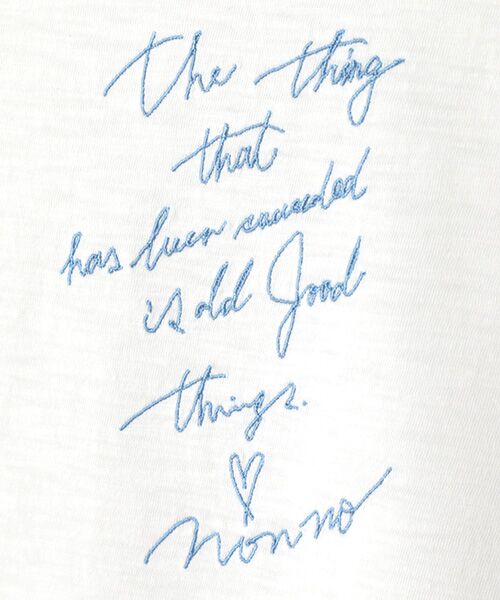 the thing
that
has been succeeded
is old Good
things.
non-no